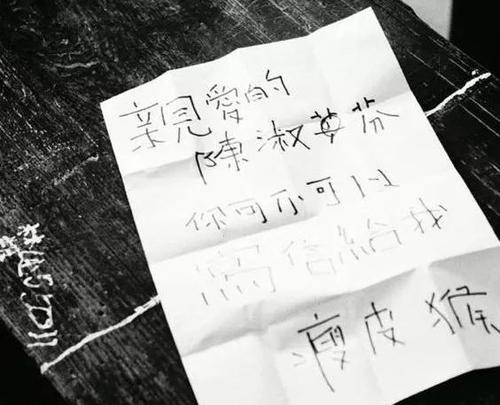 親愛的
陳淑芬
你可不可以
寫信給我
瘦皮猴